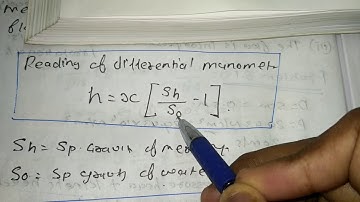 Reading of differential manomet
h = x [ Sh/So - 1 ]
Sh = Sp. gravity of mer
So = Sp gravity of wate